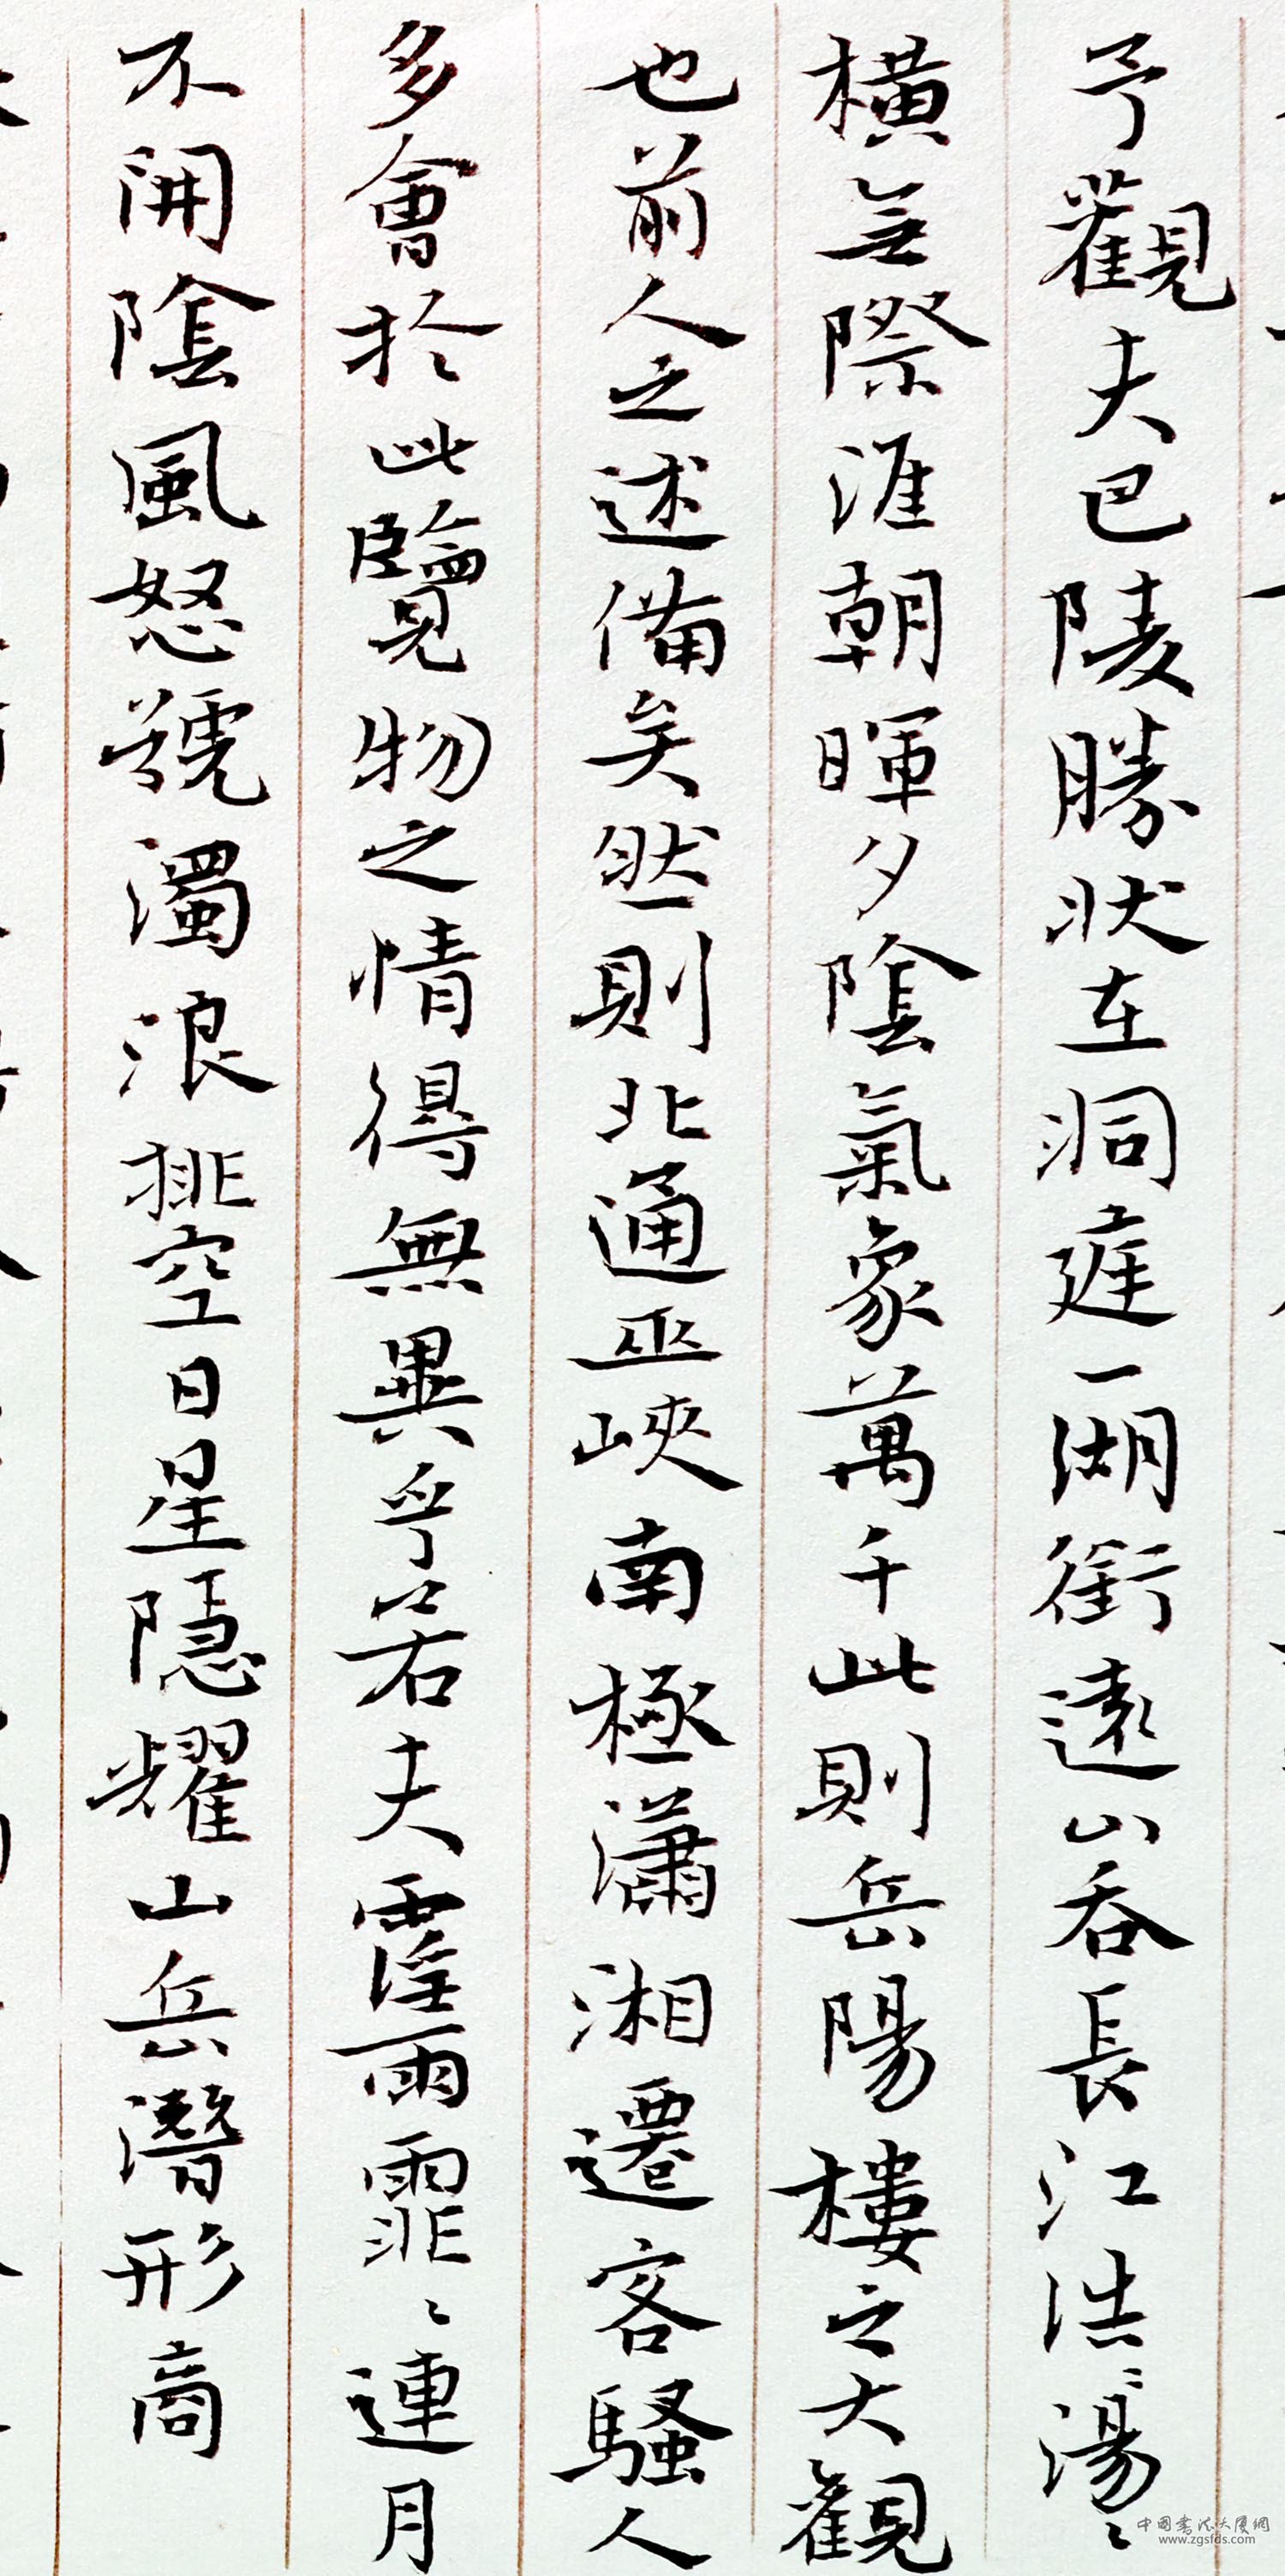 予觀夫巴陵勝狀在洞庭一湖銜遠山吞長江浩〻湯〻
橫無際涯朝暉夕陰氣象萬千此則岳陽樓之大觀
也前人之述備矣然則北通巫峽南極瀟湘遷客騷人
多會於此覽物之情得無異乎若夫霪雨霏〻連月
不開陰風怒號濁浪排空日星隱耀山岳潛形商
中國書法大廈網
www.zgsfds.com